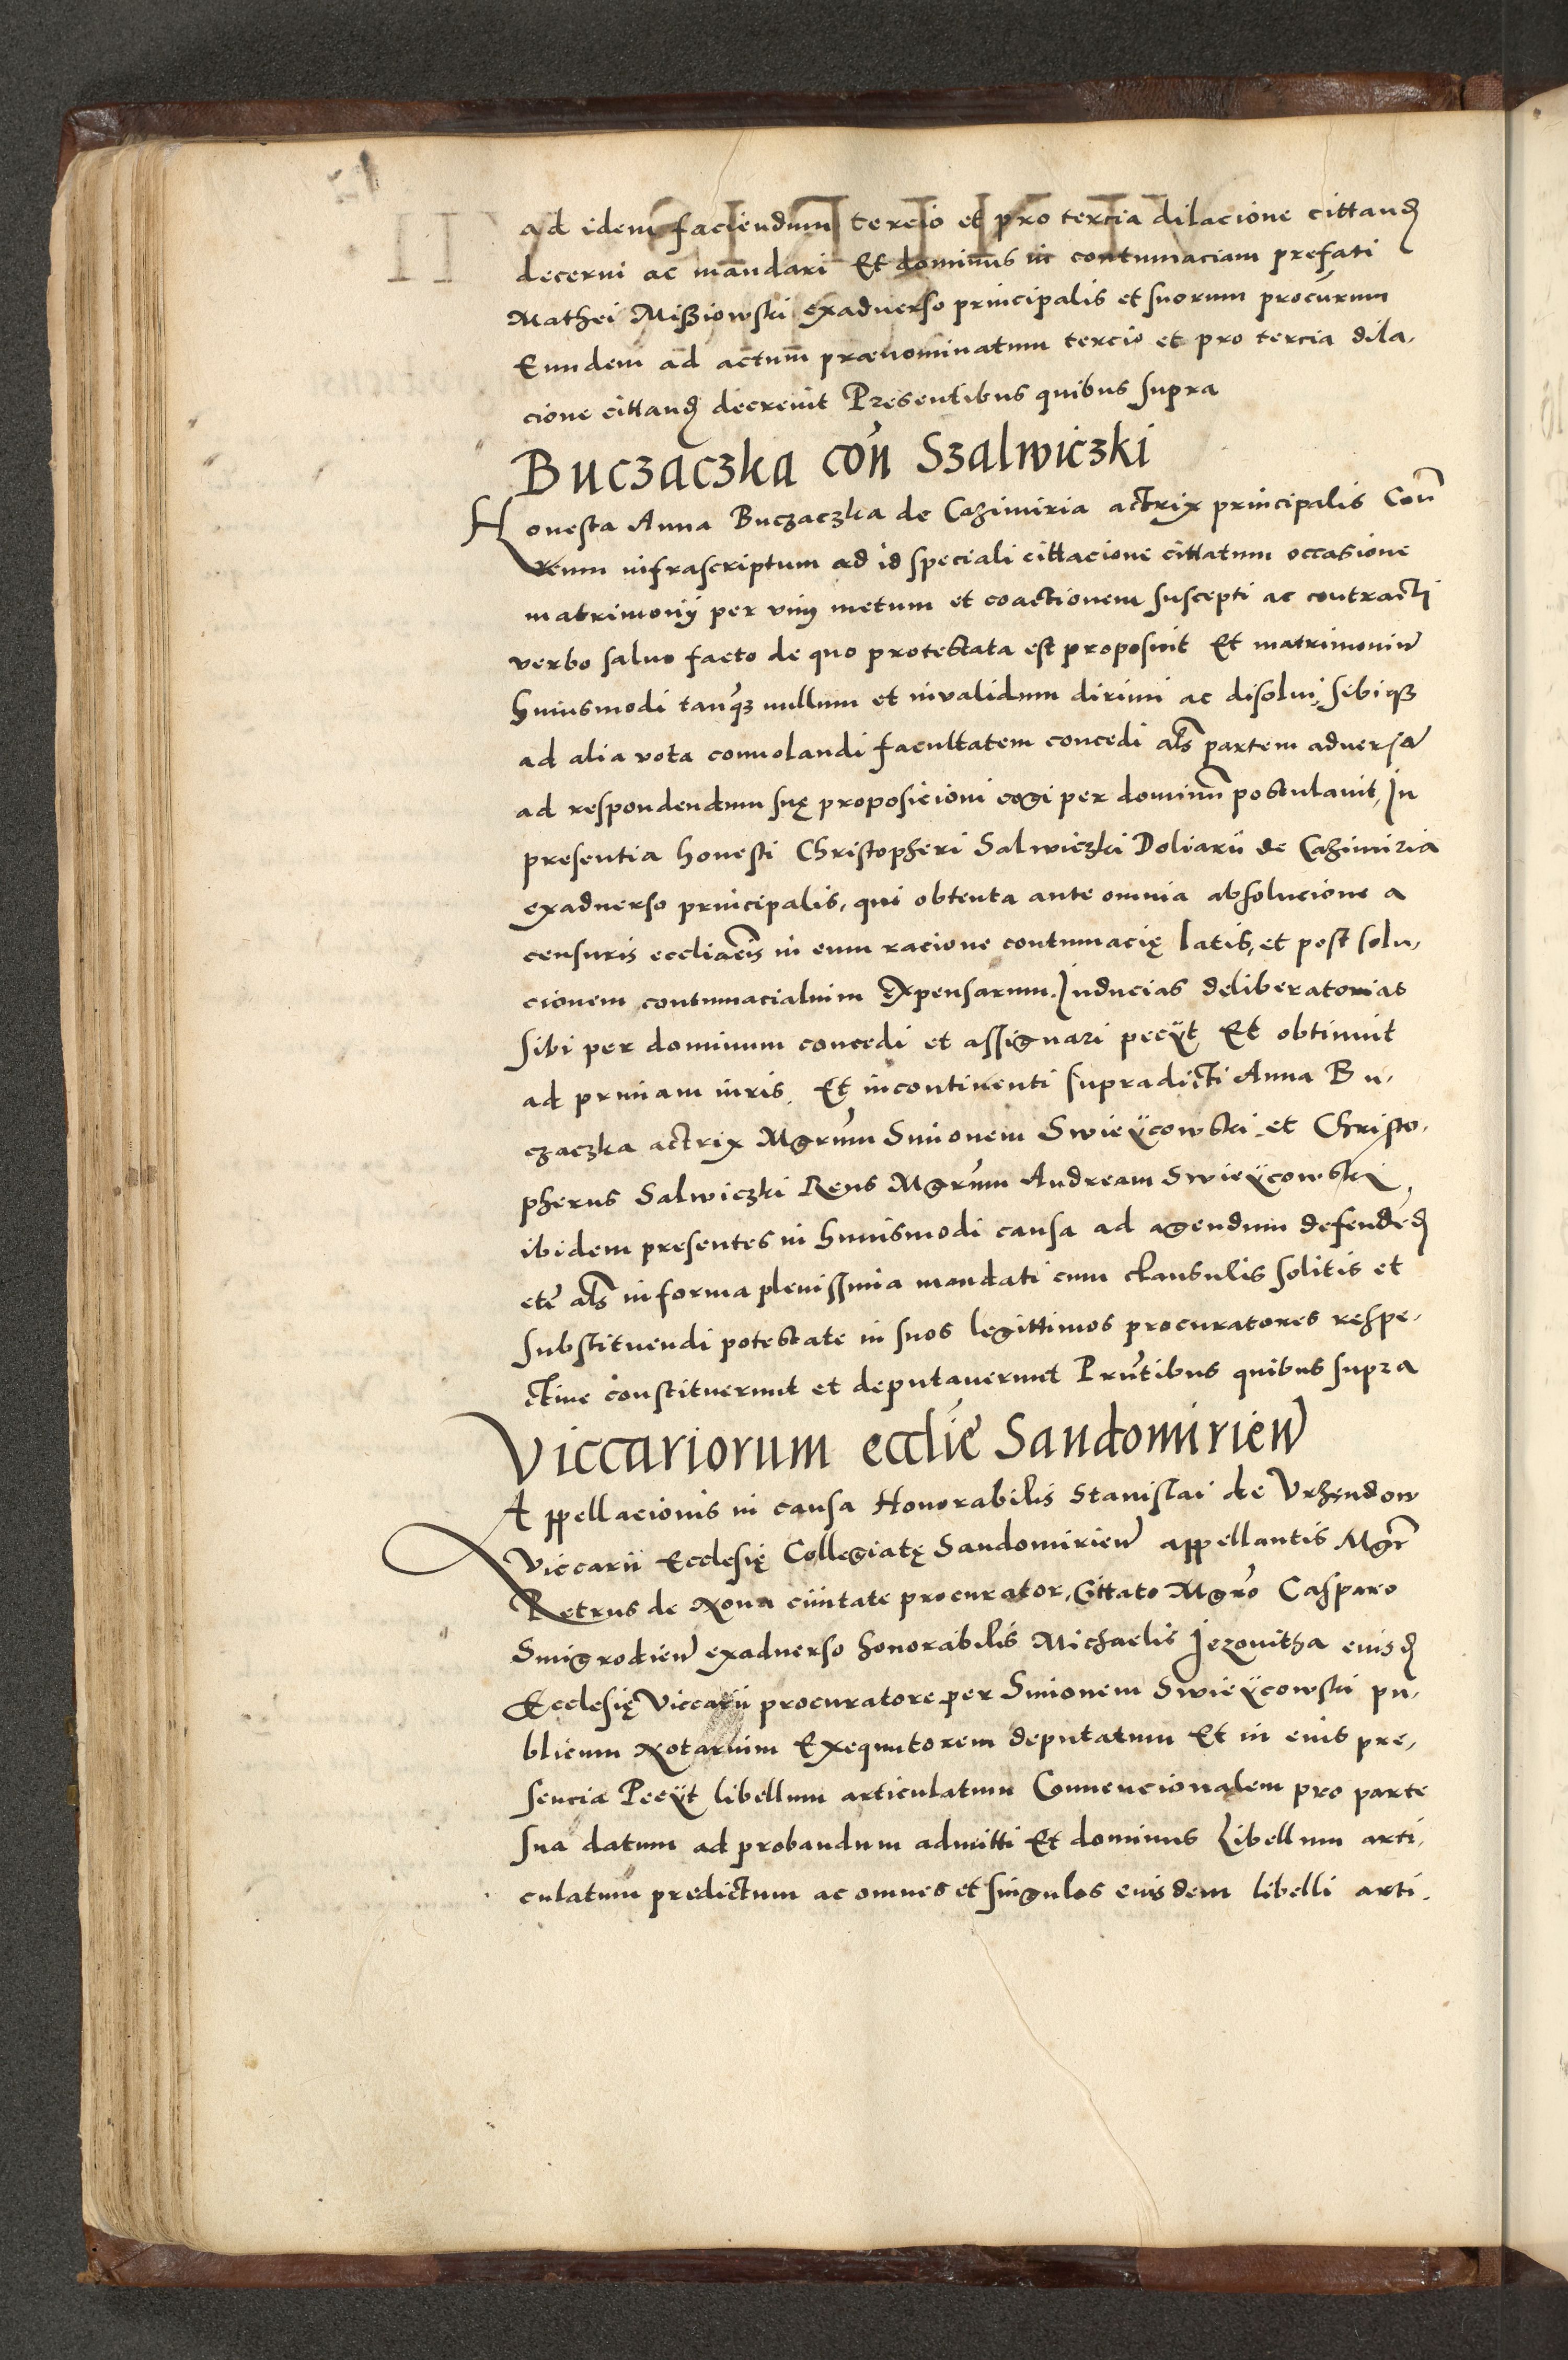 ad idem faciendum tercio et pro tercia dilacione cittand
decerni ac mandari Et dominus in contumaciam prefati
Mathei Mißiowski exadverso principalis et suorum procurum
Eundem ad actum prænominatum tercio et pro tercia dila,
cione cittand decrevit Presentibus quibus supra
Buczaczka con Szalwiczki
Honesta Anna Buczaczka de Cazimiria actrix principalis Con
Reum infrascriptum ad id speciali cittacione cittatum occasione
matrimonij per vim metum et coactionem suscepti ac contracti
verbo salvo facto de quo protestata est proposuit Et matrimoniu
huiusmodi tanqz nullum et invalidum dirimi ac disolui, sibiqz
ad alia vota convolandi facultatem concedi als partem adversa
ad respondendum suę proposicioni cogi per dominum postulavit, In
presentia honesti Christopheri Salwiczki Doliarii de Cazimiria
exadverso principalis, qui obtenta ante omnia absolucione a
censuris eccliacis in eum racione contumacię latis, et post solu,
cionem contumacialium Expensarum. Inducias deliberatorias
sibi per dominum concedi et assignari peciit Et obtinuit
ad primam iuris. Et incontinenti supradicti Anna Bu,
czaczka actrix Mgrum Simonem Swieÿcowski et Christo,
pherus Salwiczki Reus Mgrum Andream Swieÿcowski
ibidem presentes in huiusmodi causa ad agendum defendend
etc als in forma plenissima mandati cum clausulis solitis et
substituendi potestate in suos legittimos procuratores respe,
ctive constituerunt et deputaverunt Prntibus quibus supra
Viccariorum ecclie Sandomirien
Appellacionis in causa Honorabilis Stanislai de Vrzendow
Viccarii Ecclesię Collegiatę Sandomirien appellantis Mgr
Petrus de Nova civitate procurator, Cittato Mgro Casparo
Smigrodien exadverso honorabilis Michaelis Jezovitha eiusd
Ecclesię Viccarii procuratore per Simonem Swieÿcowski pu,
blicum Notarium Exequutorem deputatum Et in eius pre,
sencia Peciit libellum articulatum Convencionalem pro parte
sua datum ad probandum admitti Et dominus Libellum arti,
culatum predictum ac omnes et singulos eiusdem libelli arti,